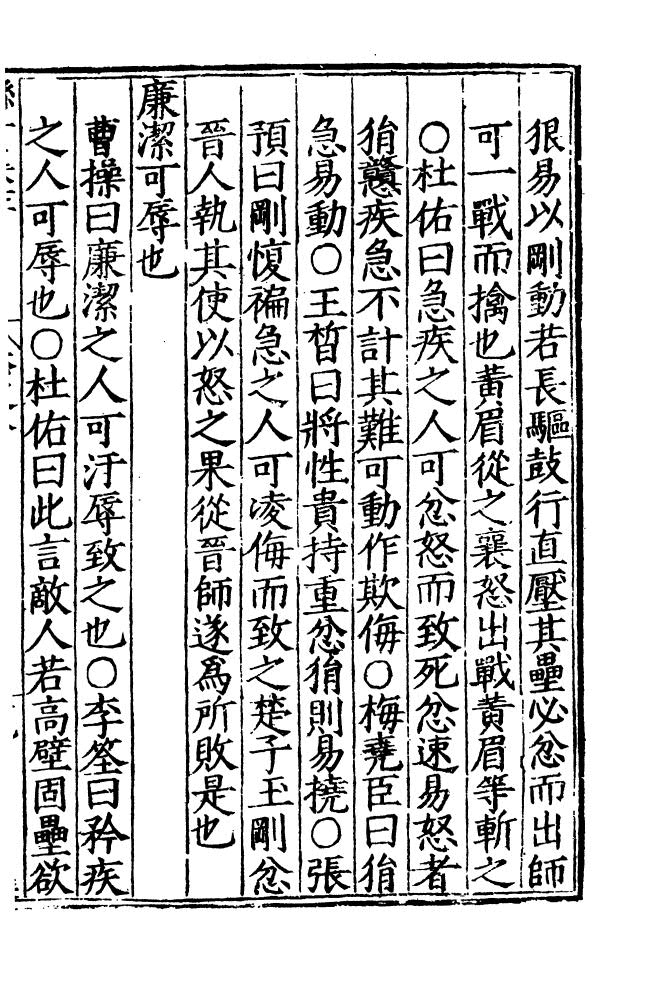 狠易以剛動若長驅鼓行直壓其壘必忿而出師
可一戰而擒也黃眉從之襄怒出戰黃眉等斬之
○杜佑曰急疾之人可忿怒而致死忿速易怒者
狷戇疾急不計其難可動作欺侮○梅堯臣曰狷
急易動○王晳曰將性貴持重忿狷則易撓○張
預曰剛愎褊急之人可凌侮而致之楚子玉剛忿
晉人執其使以怒之果從晉師遂爲所敗是也
廉潔可辱也
曹操曰廉潔之人可汙辱致之也○李筌曰矜疾
之人可辱也○杜佑曰此言敵人若高壁固壘欲